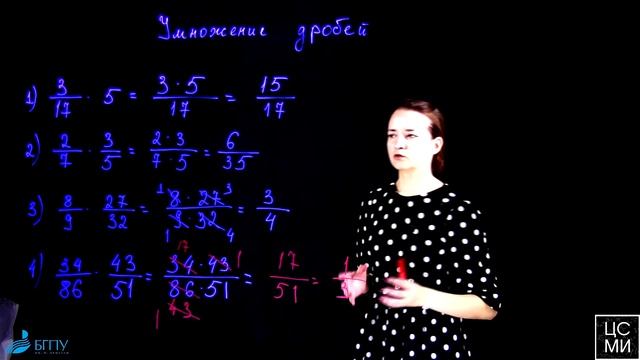 Умножение дробей
1) 3/17 · 5 = 3 · 5/17 = 15/17
2) 2/7 · 3/5 = 2 · 3/7 · 5 = 6/35
3) 8/9 · 27/32 = 1 8 · 27 3/9 · 32 1 4 = 3/4
4) 34/86 · 43/51 = 17 34 · 43 1/86 · 51 43 1 = 17/51 = 1/3
БГПУ
ЦС
МИ